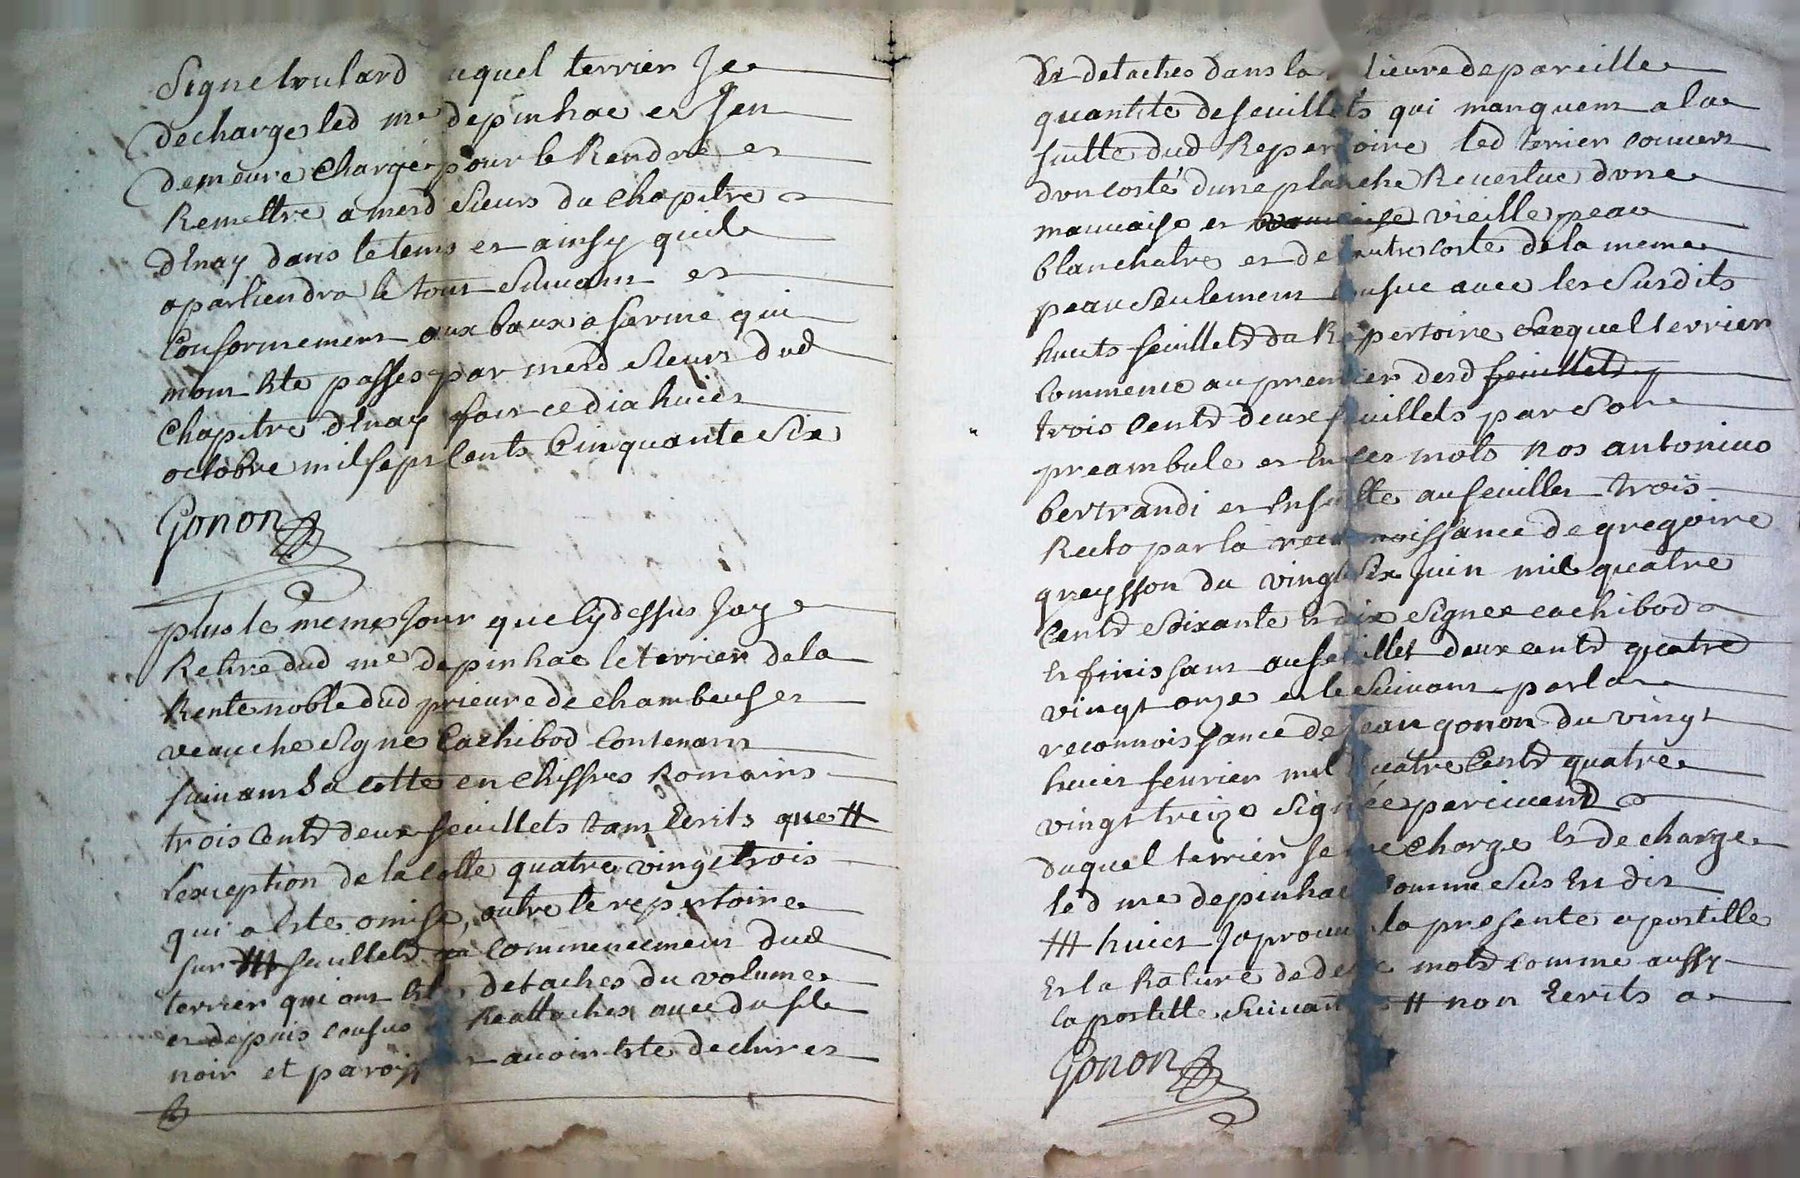 Signe trulard uquel terrier Je
decharge led me depinhac et Jen
demeure Chargé pour le Rendre et
Remettre a mesd Sieurs du Chapitre
dEnay dans le tems et ainsy quil
apartiendra le tout Suivant et
Conformement aux baux a ferme qui
mont Ete passes par mesd Sieurs dud
Chapitre dEnay fait ce dixhuict
octobre mil sept Cents Cinquante Six
Gonon
plus le meme Jour que Cydessus Jay
Retire dud me depinhac le terrier de la
Rente noble dud prieure de chambeuf et
veauche Signé Cachibod Contenant
suivant Sa cotte en chiffres Romains
trois Cents deux feuillets tant Ecrits que #
lexception de la Cotte quatre vingt trois
qui a Ete omise, outre le repertoire
sur ## feuillets au commencement dud
terrier qui ont Ete detaches du volume
et depuis cousus Reattaches avec du file
noir et paroissent avoir Ete dechires
&
de detaches dans la lieure de pareille
quantite de feuillets qui manquent a la
suitte dud Repertoire led terrier couvert
dun costé dune planche Revestue dune
mauvaise et vieille peau
blanchatre et de lautre costé de la meme
peau Seulement cousue avec les Susdits
huits feuillets du Repertoire Lequel terrier
commence au premier desd feuillets
trois Cents deux feuillets par Son
preambule et En ces mots Nos antonius
bertrandi et Ensuitte au feuillet trois
Recto par la reconnoissance de gregoire
greysson du vingt Six Juin mil quatre
Cents Soixante Et dix Signee cachibod
Et finissant au feuillet deux cents quatre
vingt onze et le Suivant par la
reconnoissance de Jean gonon du vingt
huict fevrier mil quatre Cents quatre
vingt treize Signée
duquel terrier Je me Charge Et decharge
led me depinhac Comme Sus Est dit
## huict Japrouve la presente apostille
Et la Rature de deux mots comme aussy
lapostille Suivante # non Ecrits a
Gonon